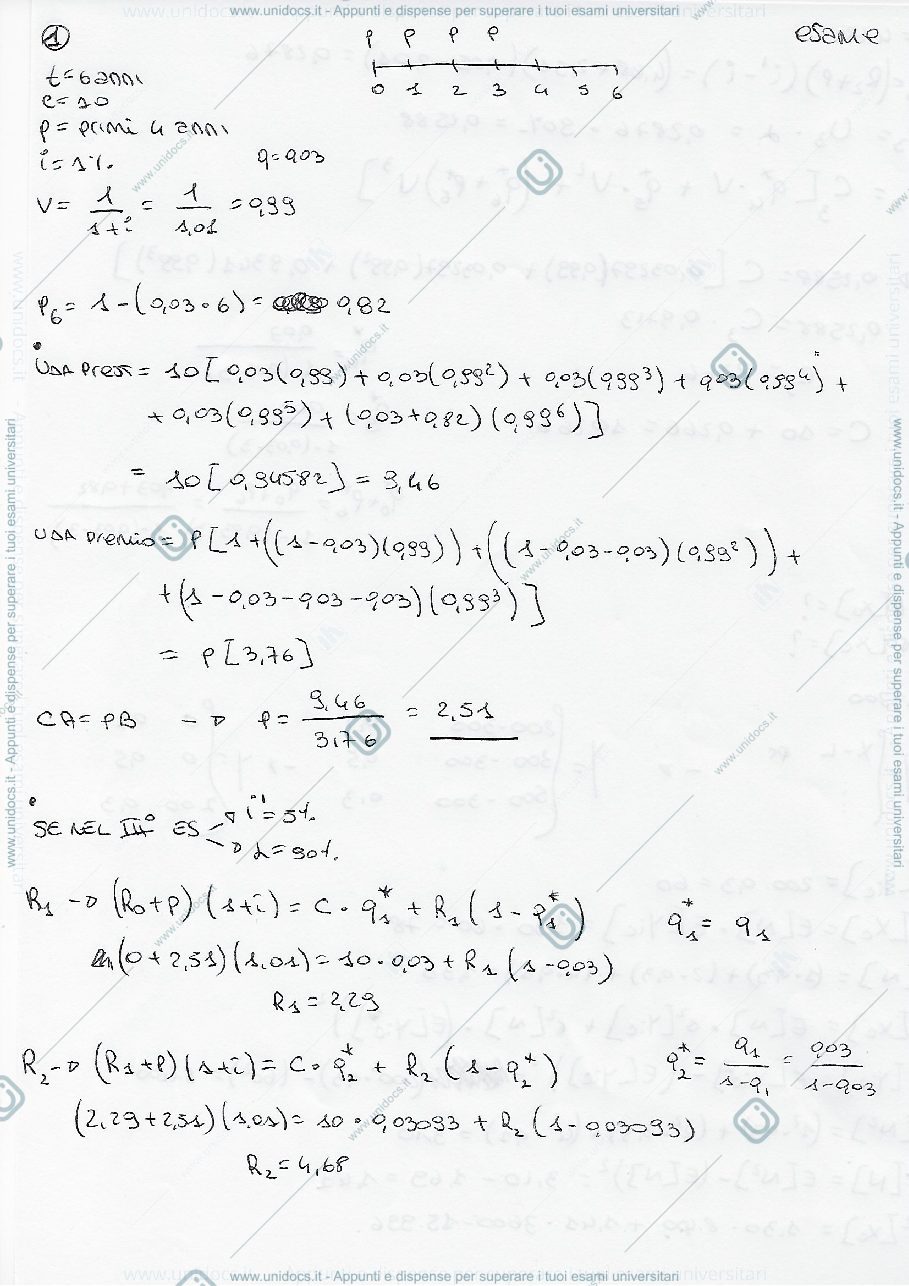 www.unidocs.it - Appunti e dispense per superare i tuoi esami universitari
1 P P P P esame
0 1 2 3 4 5 6
t=6 anni
C=10
P= primi 4 anni
i=1% q=0,03
V= 1/(1+i) = 1/1,01 =0,99
P₆= 1-(0,03·6)= 0,82
VDA Prest= 10[0,03(0,99)+0,03(0,99²)+0,03(0,99³)+0,03(0,99⁴)+
+0,03(0,99⁵)+(0,03+0,82)(0,99⁶)]
= 10[0,94582]=9,46
VDA premio= P[1+((1-0,03)(0,99))+((1-0,03-0,03)(0,99²))+
+(1-0,03-0,03-0,03)(0,99³)]
= P[3,76]
CA=PB → P= 9,46/3,76 = 2,51
SE NEL III° ES → i'=5%
→ α=90%
R₁ → (R₀+P)(1+i)=C·q₁*+R₁(1-q₁*) q₁*=q₁
(0+2,51)(1,01)=10·0,03+R₁(1-0,03)
R₁=2,29
R₂→(R₁+P)(1+i)=C·q₂*+R₂(1-q₂*) q₂*= q₁/(1-q₁) = 0,03/(1-0,03)
(2,29+2,51)(1,01)=10·0,03093+R₂(1-0,03093)
R₂=4,68
www.unidocs.it - Appunti e dispense per superare i tuoi esami universitari